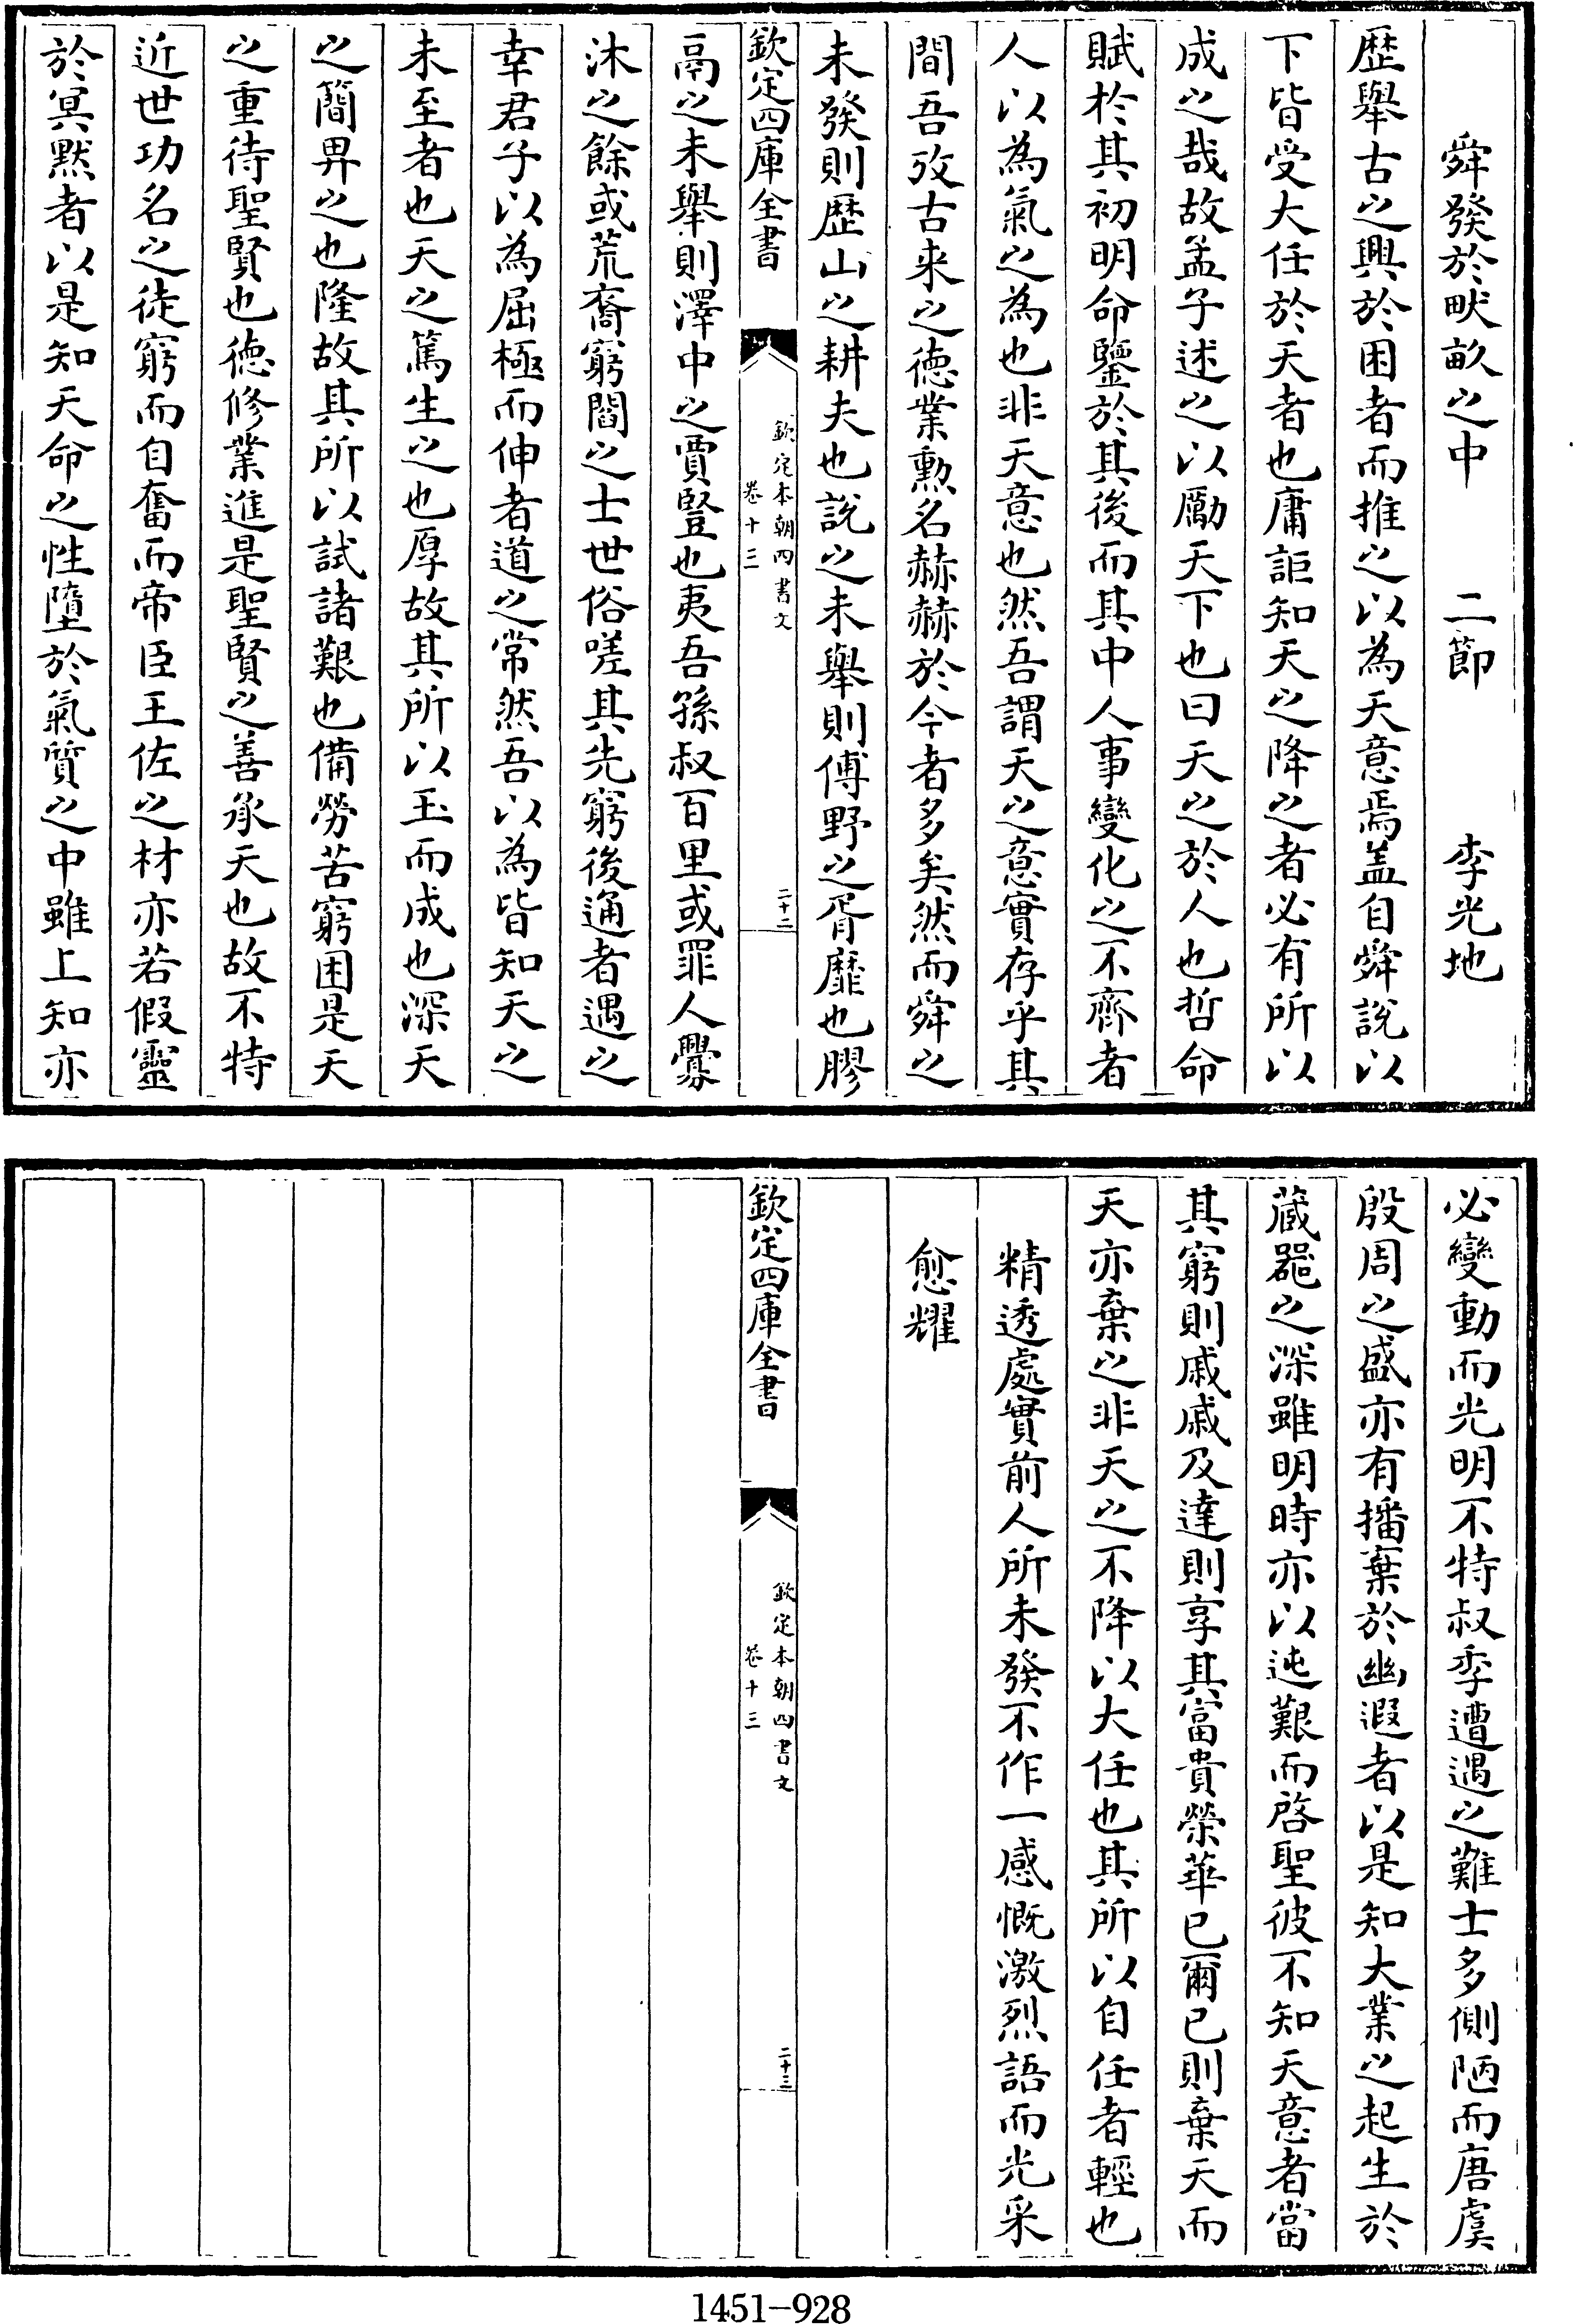 舜發於畎畝之中　二節　李光地
歷舉古之興於困者而推之以為天意焉蓋自舜說以
下皆受大任於天者也庸詎知天之降之者必有所以
成之哉故孟子述之以勵天下也曰天之於人也哲命
賦於其初明命鑒於其後而其中人事變化之不齊者
人以為氣之為也非天意也然吾謂天之意實存乎其
間吾攷古来之徳業勲名赫赫於今者多矣然而舜之
未發則歷山之耕夫也說之未舉則傅野之胥靡也膠
欽定四庫全書
欽定本朝四書文
卷十三
二十二
鬲之未舉則澤中之賈豎也夷吾孫叔百里或罪人釁
沐之餘或荒裔窮閻之士世俗嗟其先窮後通者遇之
幸君子以為屈極而伸者道之常然吾以為皆知天之
未至者也天之篤生之也厚故其所以玉而成也深天
之簡畀之也隆故其所以試諸艱也備勞苦窮困是天
之重待聖賢也徳修業進是聖賢之善承天也故不特
近世功名之徒窮而自奮而帝臣王佐之材亦若假靈
於冥默者以是知天命之性墮於氣質之中雖上知亦
必變動而光明不特叔季遭遇之難士多側陋而唐虞
殷周之盛亦有播棄於幽遐者以是知大業之起生於
藏器之深雖明時亦以迍艱而啓聖彼不知天意者當
其窮則戚戚及達則享其富貴榮華已爾已則棄天而
天亦棄之非天之不降以大任也其所以自任者輕也
精透處實前人所未發不作一感慨激烈語而光采
愈耀
欽定四庫全書
欽定本朝四書文
卷十三
二十三
1451-928